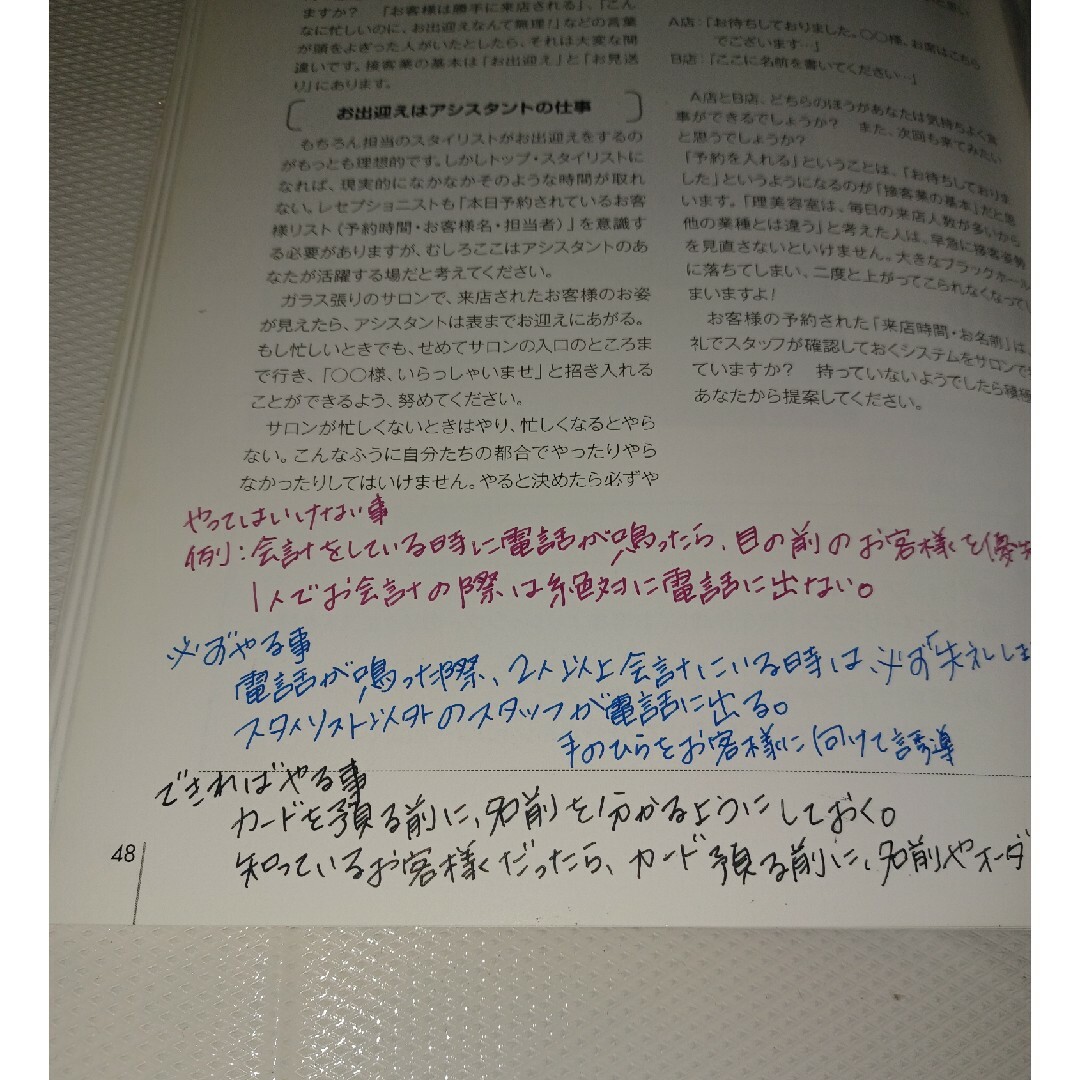 ますか？ 「お客様は勝手に来店される」、「こん
なに忙しいのに、お出迎えなんて無理！」などの言葉
が頭をよぎった人がいたとしたら、それは大変な間
違いです。接客業の基本は「お出迎え」と「お見送
り」にあります。
お出迎えはアシスタントの仕事
もちろん担当のスタイリストがお出迎えをするの
がもっとも理想的です。しかしトップ・スタイリストに
なれば、現実的になかなかそのような時間が取れ
ない。レセプショニストも「本日予約されているお客
様リスト（予約時間・お客様名・担当者）」を意識す
る必要がありますが、むしろここはアシスタントのあ
なたが活躍する場だと考えてください。
ガラス張りのサロンで、来店されたお客様のお姿
が見えたら、アシスタントは表までお迎えにあがる。
もし忙しいときでも、せめてサロンの入口のところま
で行き、「〇〇様、いらっしゃいませ」と招き入れる
ことができるよう、努めてください。
サロンが忙しくないときはやり、忙しくなるとやら
ない。こんなふうに自分たちの都合でやったりやら
なかったりしてはいけません。やると決めたら必ずや
A店：「お待ちしておりました。〇〇様、お席はこちら
でございます…」
B店：「ここに名前を書いてください…」
A店とB店、どちらのほうがあなたは気持ちよく食
事ができるでしょうか？ また、次回も来てみたい
と思うでしょうか？
「予約を入れる」ということは、「お待ちしておりま
した」というようになるのが「接客業の基本」だと思
います。「理美容室は、毎日の来店人数が多いから
他の業種とは違う」と考えた人は、早急に接客姿勢
を見直さないといけません。大きなブラックホール
に落ちてしまい、二度と上がってこられなくなって
まいますよ！
お客様の予約された「来店時間・お名前」は、
礼でスタッフが確認しておくシステムをサロンで
ていますか？ 持っていないようでしたら積極
あなたから提案してください。
やってはいけない事
例：会計をしている時に電話が鳴ったら、目の前のお客様を優先
1人でお会計の際は絶対に電話に出ない。
必ずやる事
電話が鳴った際、2人以上会計にいる時は、必ず「失礼しま
スタイリスト以外のスタッフが電話に出る。
手のひらをお客様に向けて誘導
できればやる事
カードを預る前に、名前を分かるようにしておく。
知っているお客様くだったら、カード預る前に、名前やオーダ
48